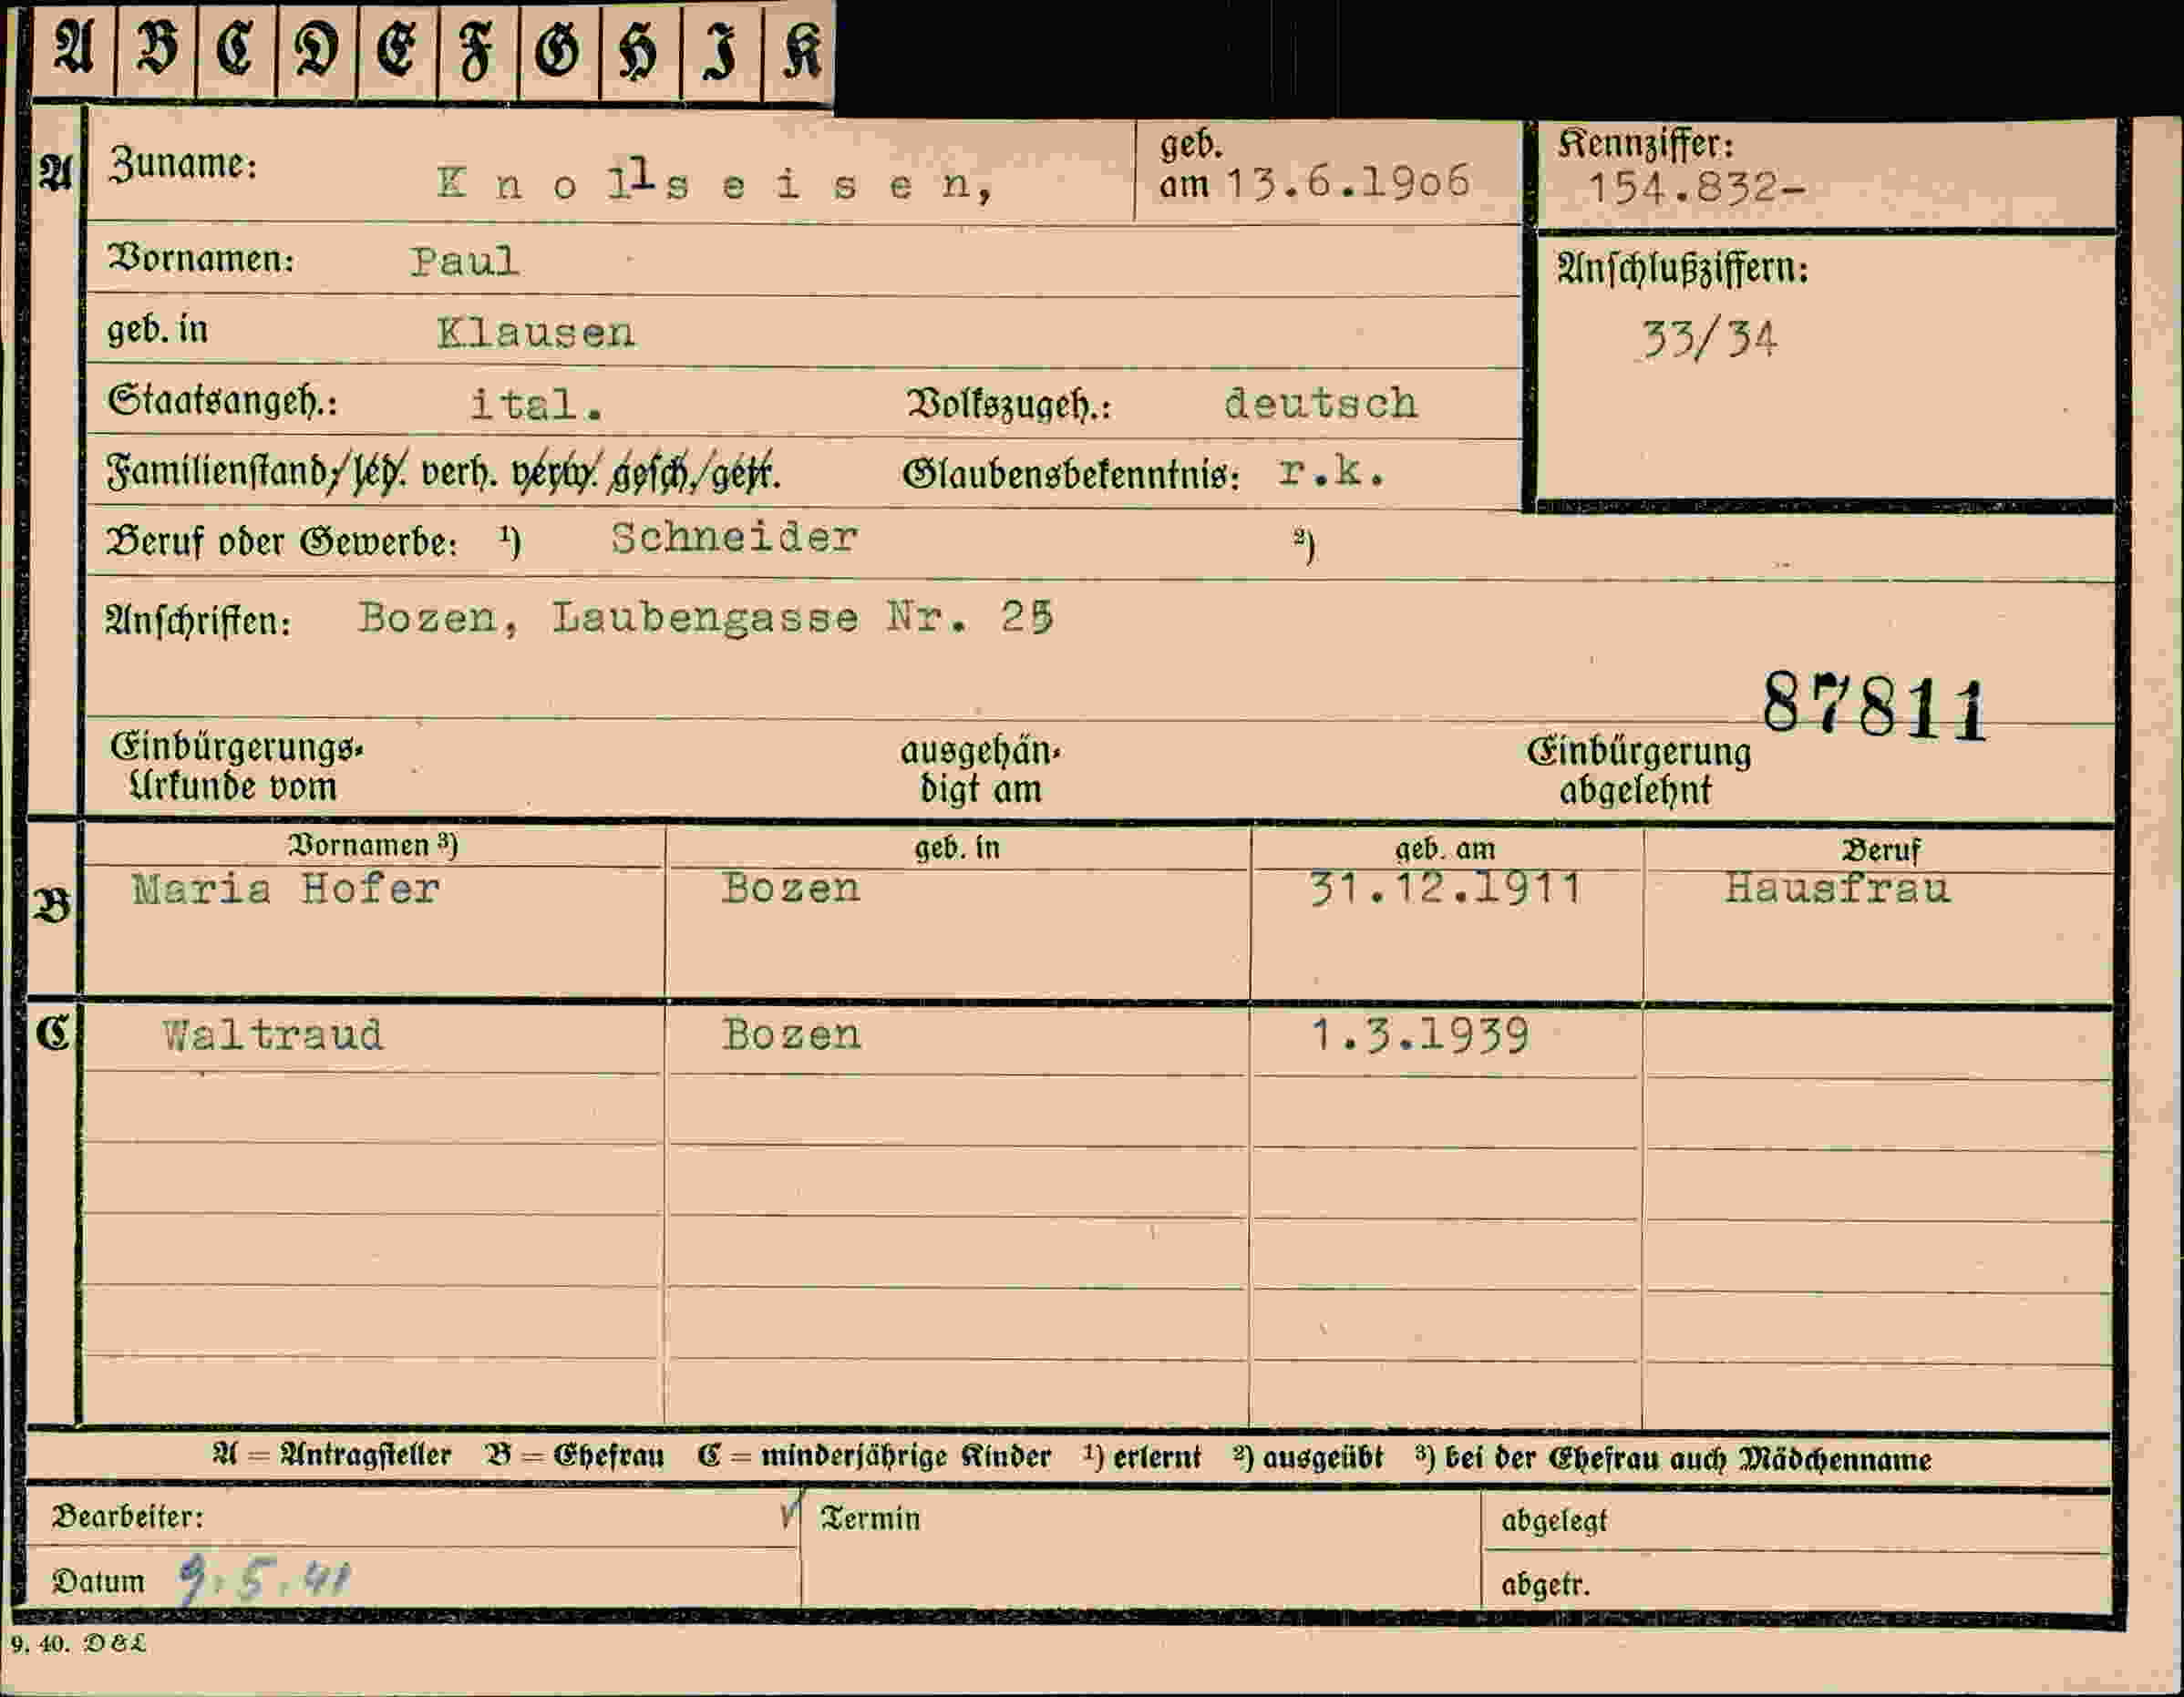 A B C D E F G H I K
A Zuname: Knollseisen, geb. am 13.6.1906 Kennziffer: 154.832-
Vornamen: Paul Anschlußziffern:
geb. in Klausen 33/34
Staatsangeh.: ital. Volkszugeh.: deutsch
Familienstand: led. verh. verw. gesch. getr. Glaubensbekenntnis: r.k.
Beruf oder Gewerbe: ¹) Schneider ²)
Anschriften: Bozen, Laubengasse Nr. 25
87811
Einbürgerungs-Urkunde vom ausgehändigt am Einbürgerung abgelehnt
Vornamen ³) geb. in geb. am Beruf
B Maria Hofer Bozen 31.12.1911 Hausfrau
C Waltraud Bozen 1.3.1939
A = Antragsteller B = Ehefrau C = minderjährige Kinder ¹) erlernt ²) ausgeübt ³) bei der Ehefrau auch Mädchenname
Bearbeiter: Termin abgelegt
Datum 9.5.41 abgetr.
9. 40. D & L